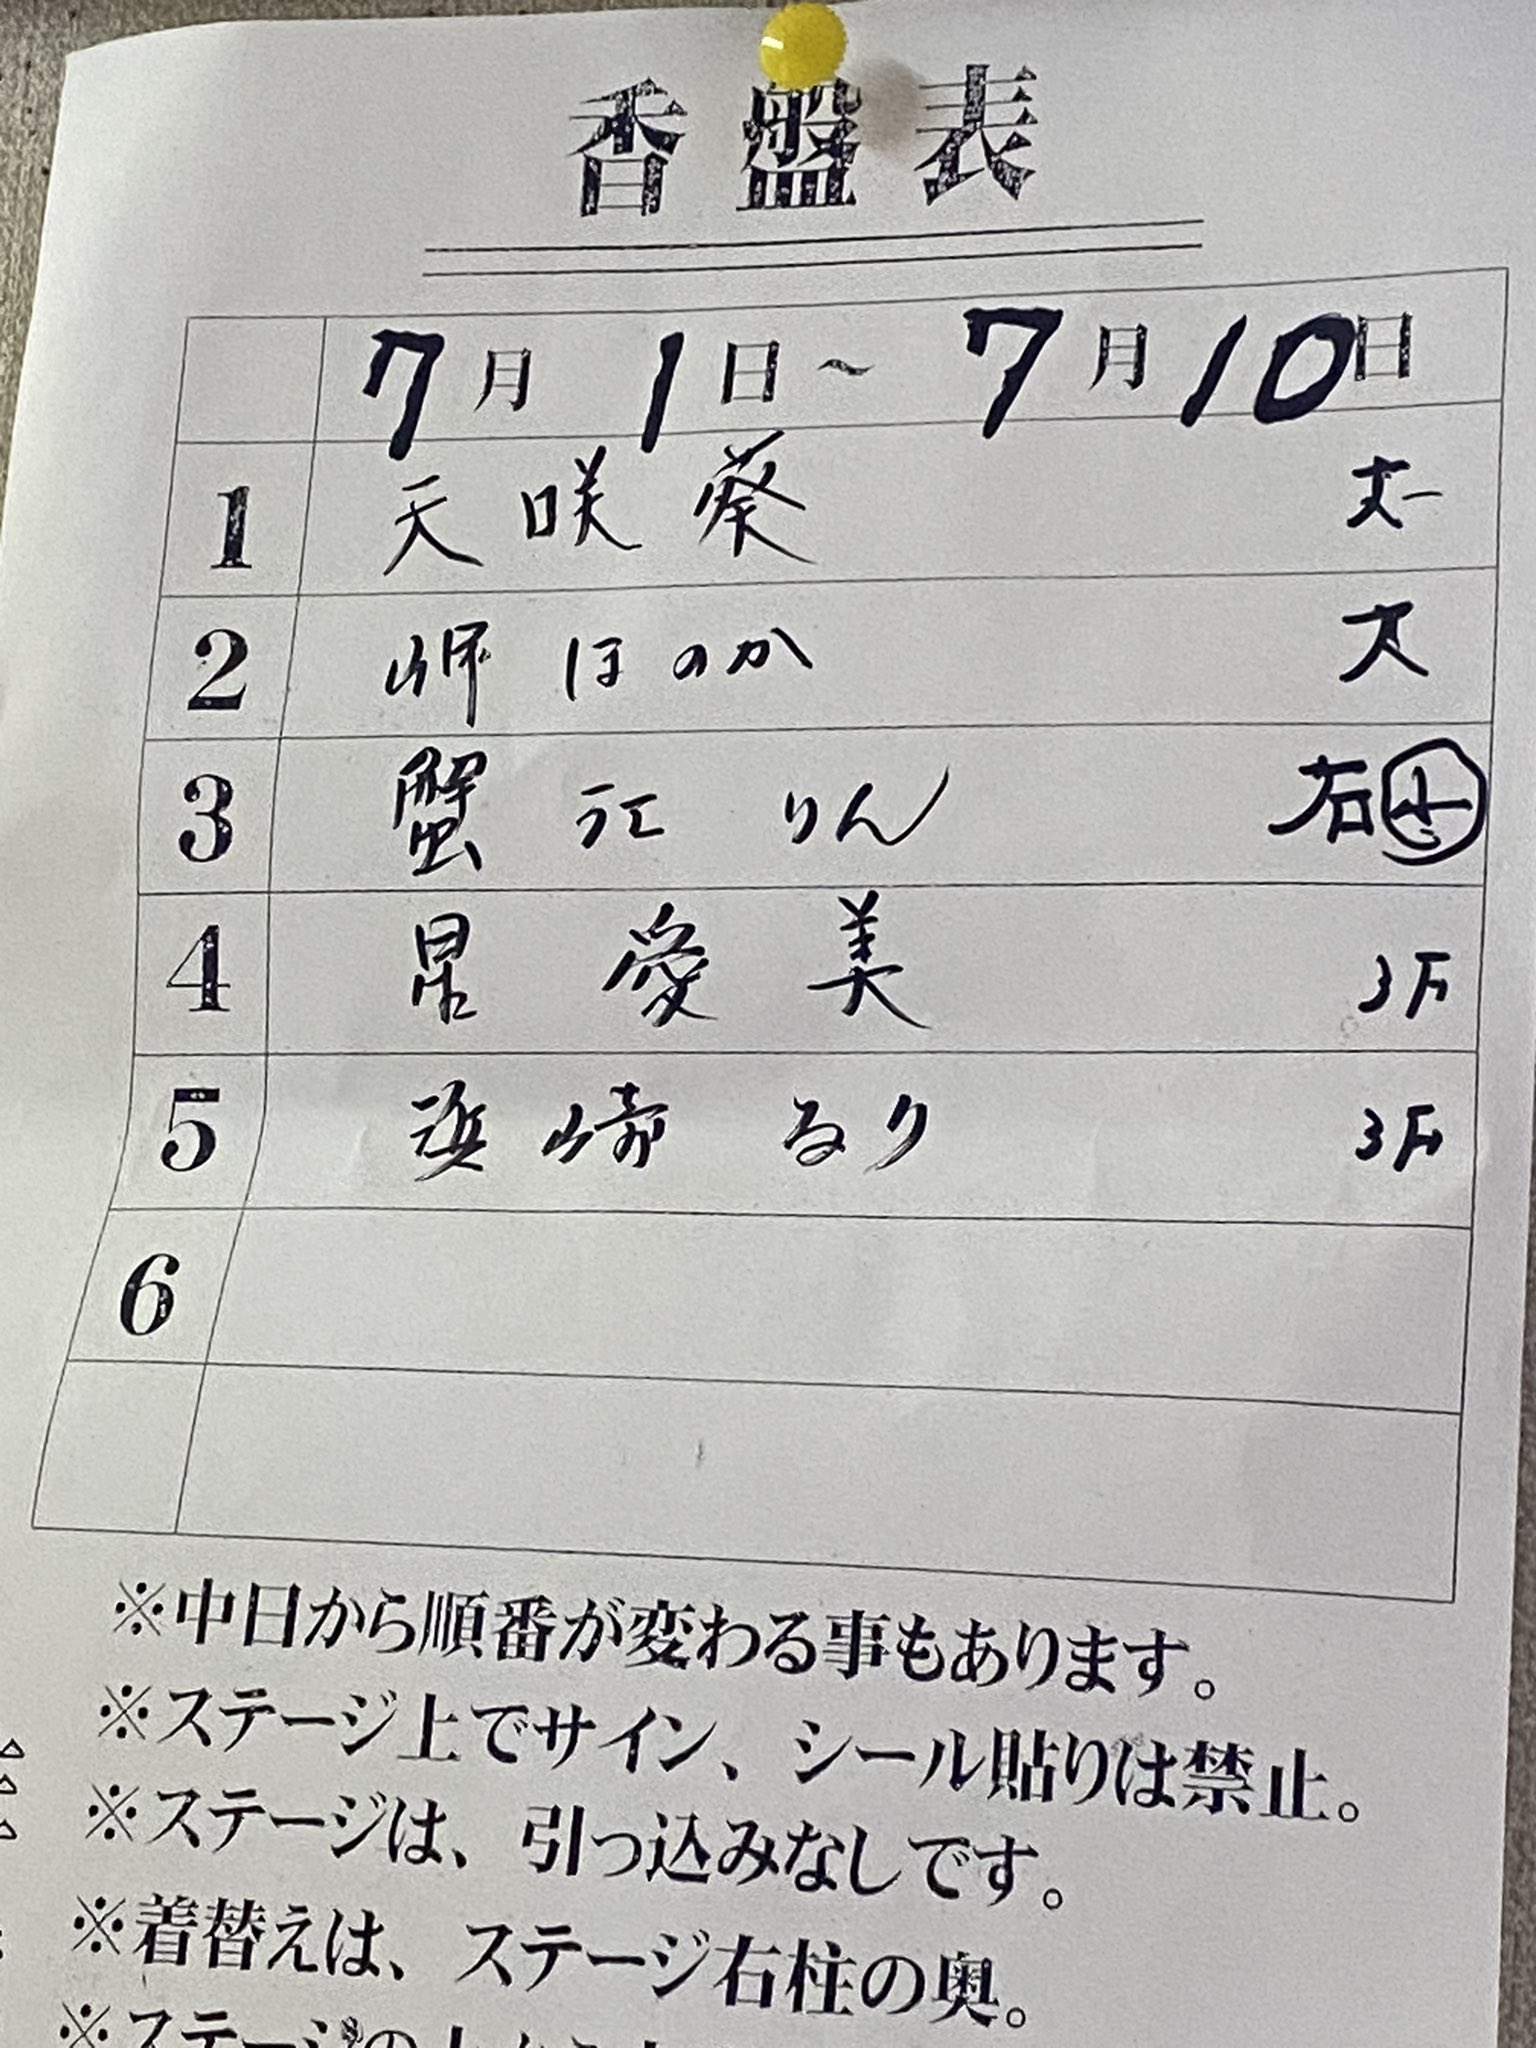 香盤表
7月1日～7月10日
1 天咲葵
2 岬ほのか 大
3 蟹江りん 右小
4 星愛美 3F
5 浜崎るり 3F
6
※中日から順番が変わる事もあります。
※ステージ上でサイン、シール貼りは禁止。
※ステージは、引っ込みなしです。
※着替えは、ステージ右柱の奥。
※ステージの